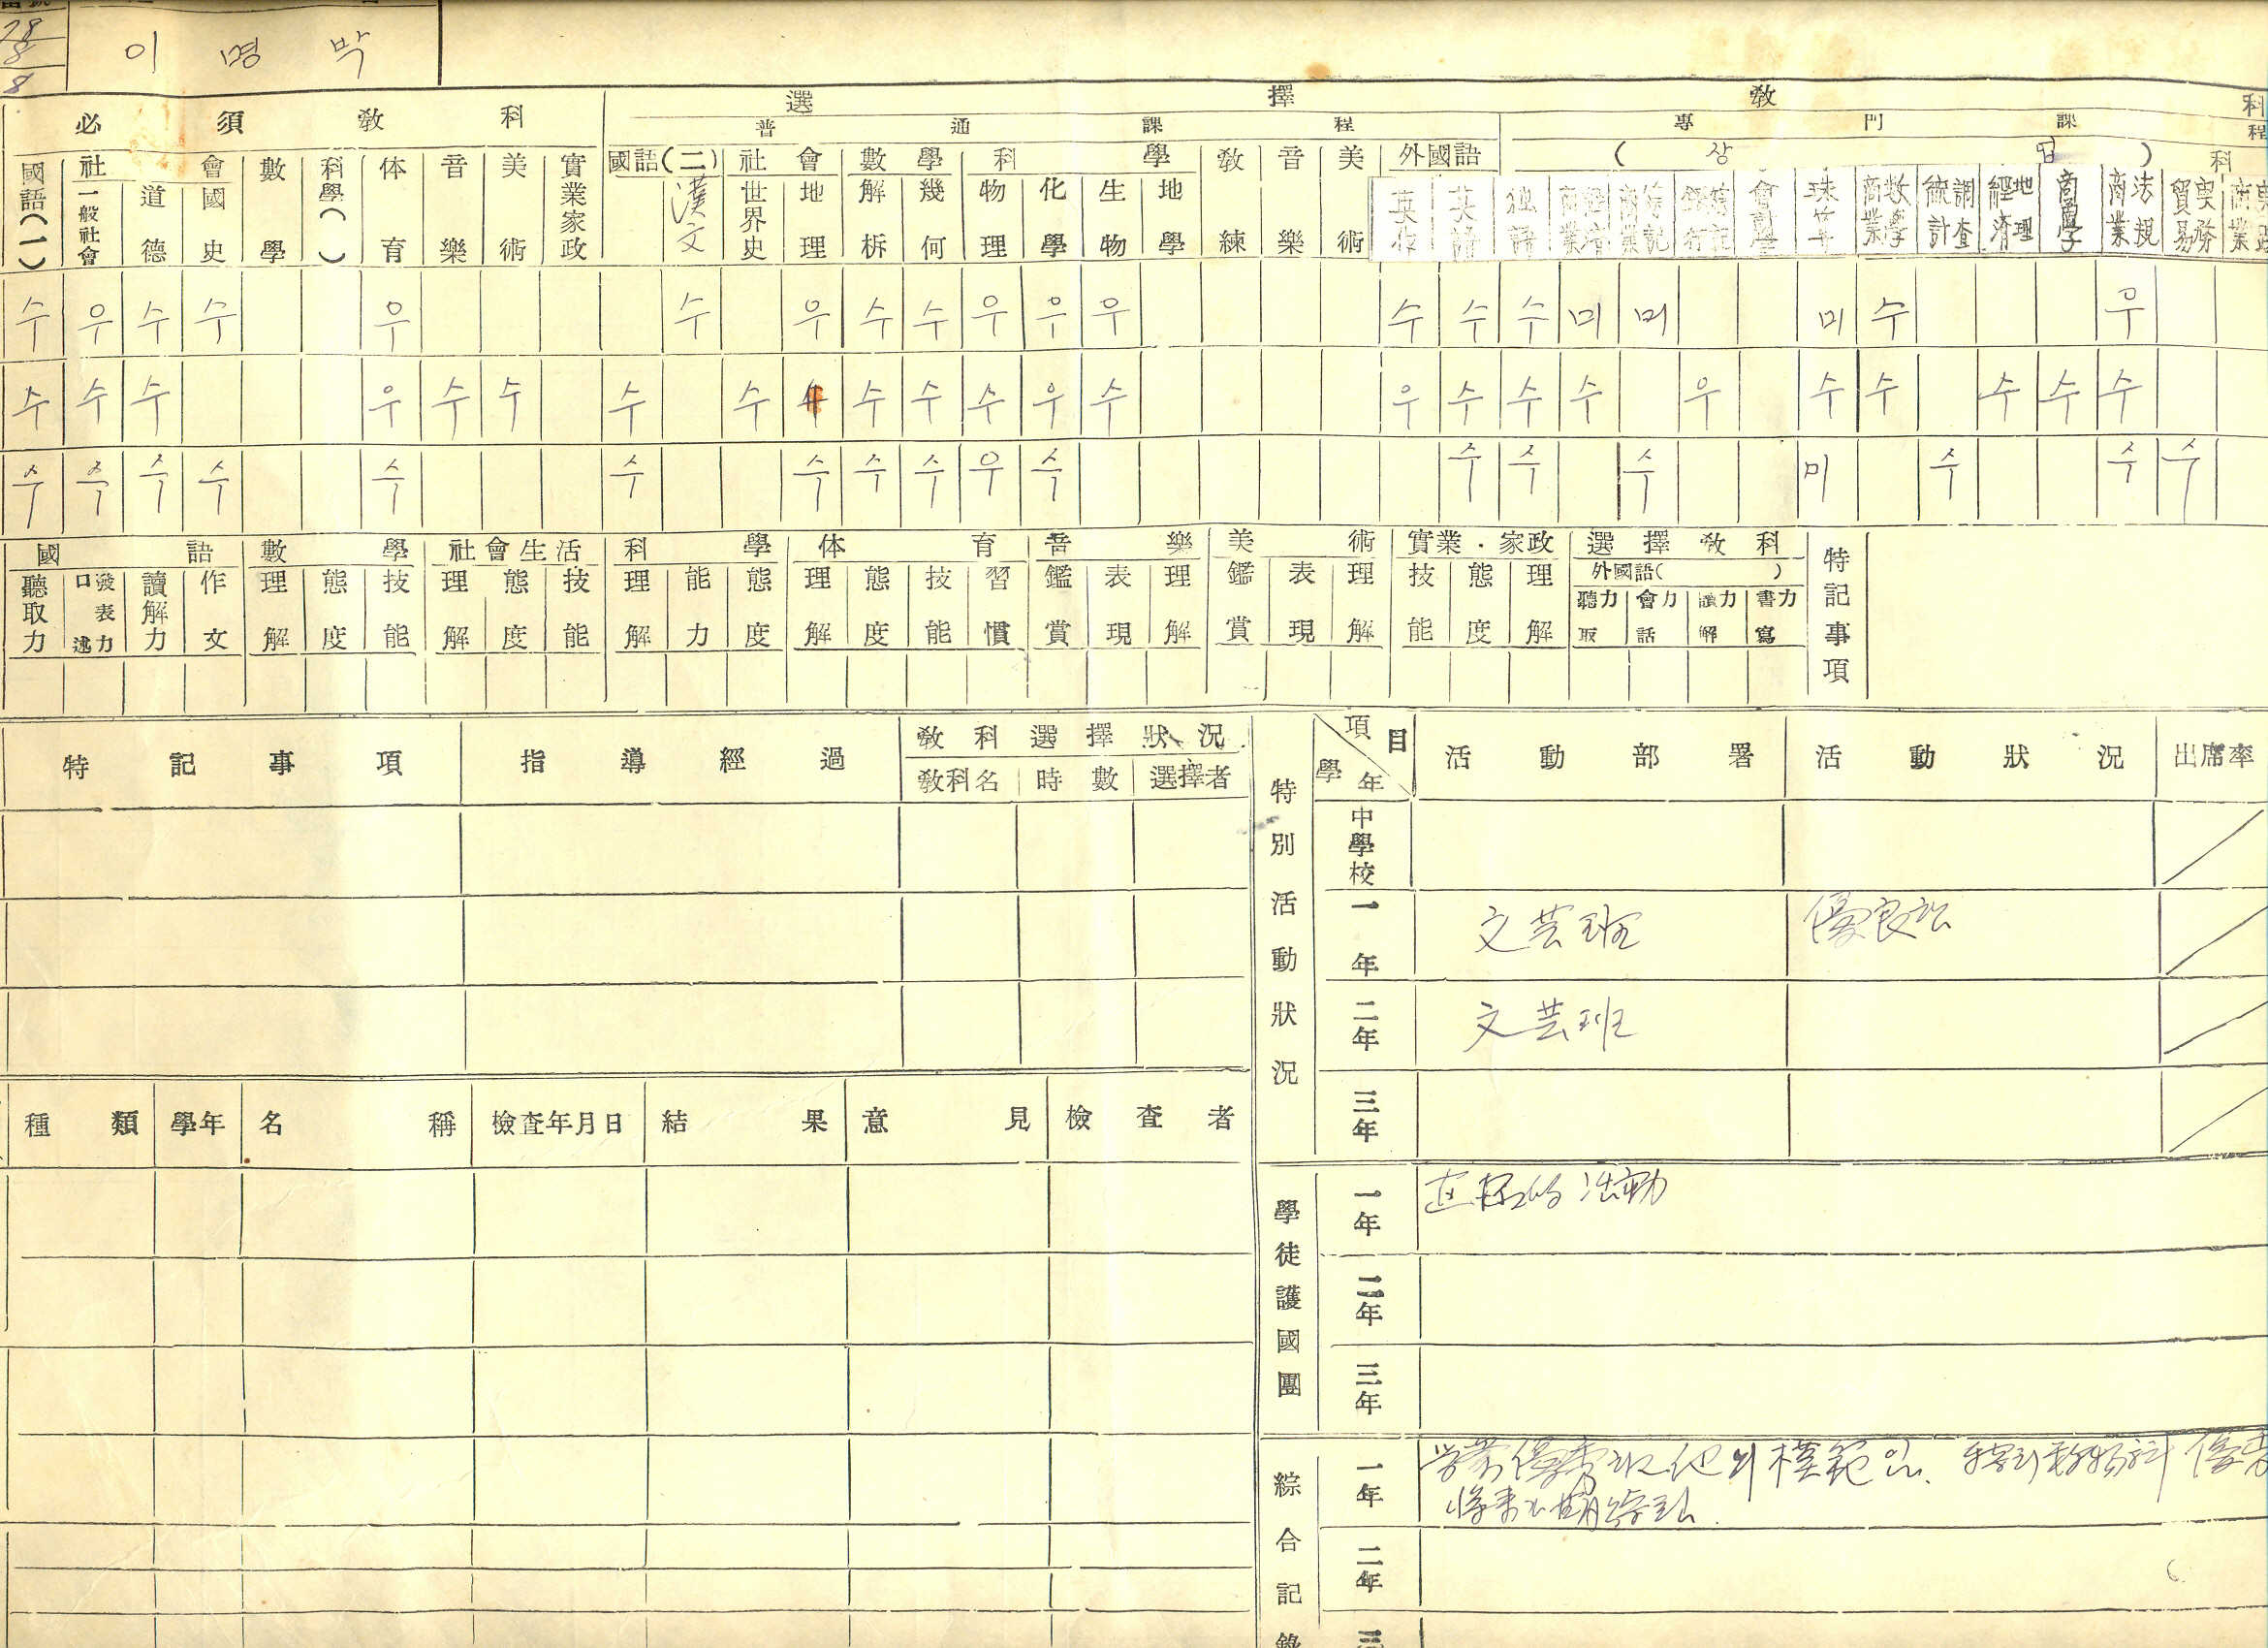 이 명 박
必 須 敎 科
選 擇 敎 科
普 通 課 程
專 門 課 程
( 상 업 ) 科
國語(一) 社會 一般社會 道德 國史 數學 科學( ) 体育 音樂 美術 實業家政 國語(二) 漢文 社會 世界史 地理 數學 解析 幾何 科學 物理 化學 生物 地學 敎練 音樂 美術 外國語 英作 英語 獨語 會計學 珠算 商業數學 統計調査 經濟地理 商品學 商業法規 貿易実務
수 우 수 수 우 수 우 수 수 우 우 우 수 수 수 미 미 미 수 우
수 수 수 우 수 수 수 수 수 수 수 수 우 수 우 수 수 수 우 수 수 수 수 수
수 수 수 수 수 수 수 수 수 우 수 수 수 수 미 수 수 수
國語 數學 社會生活 科學 体育 音樂 美術 實業・家政 選擇敎科 特記事項
外國語( )
聽取力 口述發表力 讀解力 作文 理解 態度 技能 理解 態度 技能 理解 能力 態度 理解 態度 技能 習慣 鑑賞 表現 理解 鑑賞 表現 理解 技能 態度 理解 聽取力 會話力 讀解力 書寫力
特記事項 指導經過 敎科選擇狀況
敎科名 時數 選擇者
特別活動狀況
項目 學年 活動部署 活動狀況 出席率
中學校
一年 文芸班 優良함
二年 文芸班
三年
種類 學年 名稱 檢查年月日 結果 意見 檢查者
學徒護國團
一年 活動
二年
三年
綜合記錄
一年 学業優秀 他의 模範임.
二年
三